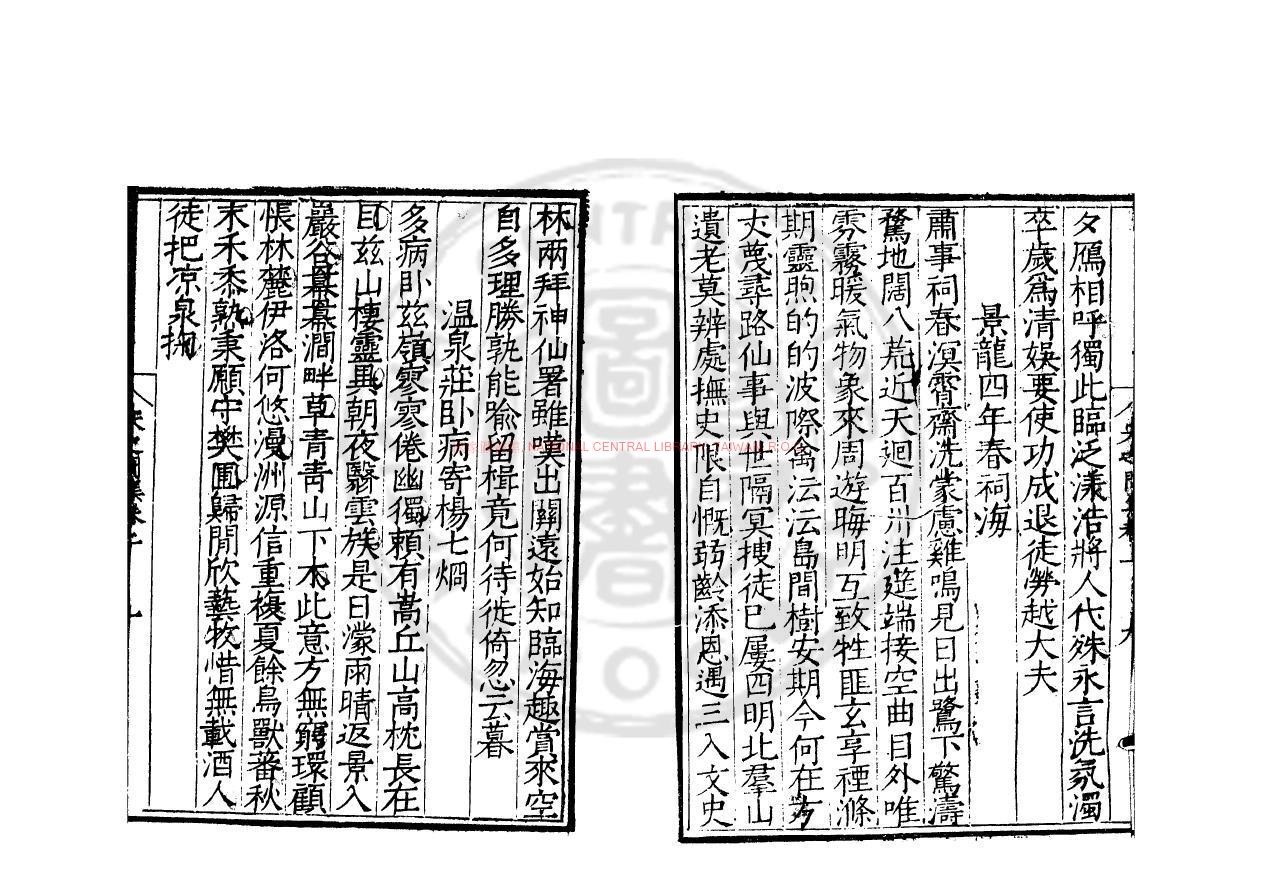 夕鴈相呼獨此臨泛漾浩將人代殊永言洗氛濁
卒歲爲清娛要使功成退徒勞越大夫
景龍四年春祠海
肅事祠春溟霄齋洗蒙慮雞鳴見日出鷺下驚濤
鶩地闊八荒近天迴百川注筵端接空曲目外唯
雰霧暖氣物象來周遊晦明互致牲匪玄享禋滌
期靈煦的的波際禽沄沄島間樹安期今何在方
丈蔑尋路仙事與世隔冥搜徒已屢四明北羣山
遺老莫辨處撫史限自慨弱齡添恩遇三入文史
林兩拜神仙署雖嘆出關遠始知臨海趣賞來空
自多理勝孰能喻留楫竟何待徙倚忽云暮
温泉莊卧病寄楊七烱
多病卧兹嶺寥寥倦幽獨賴有嵩丘山高枕長在
目兹山棲靈異朝夜翳雲族是日濛雨晴返景入
巖谷冪冪澗畔草青青山下木此意方無窮環顧
悵林麓伊洛何悠漫洲源信重複夏餘鳥獸蕃秋
末禾黍熟秉願守樊圃歸閒欣藝牧惜無載酒人
徒把凉泉掬
NATIONAL CENTRAL LIBRARY, TAIWAN, R.O.C